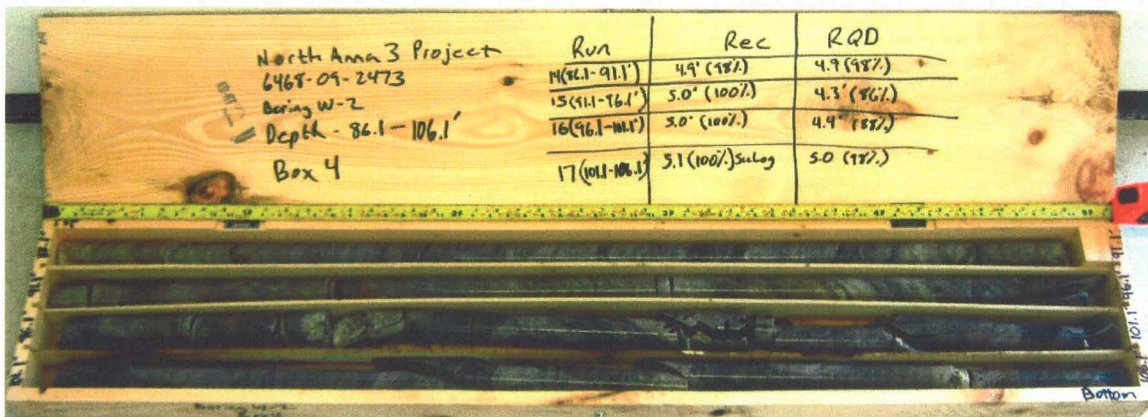 North Anna 3 Project
6468-09-2473
Boring W-2
Depth - 86.1 - 106.1'
Box 4
Run Rec RQD
14(86.1-91.1') 4.9' (98%) 4.9 (98%)
15(91.1-96.1') 5.0' (100%) 4.3' (86%)
16(96.1-101.1') 5.0' (100%) 4.4' (88%)
17(101.1-106.1') 5.1 (100%) See Log 5.0 (98%)
91.1'
96.1'
101.1'
Bottom